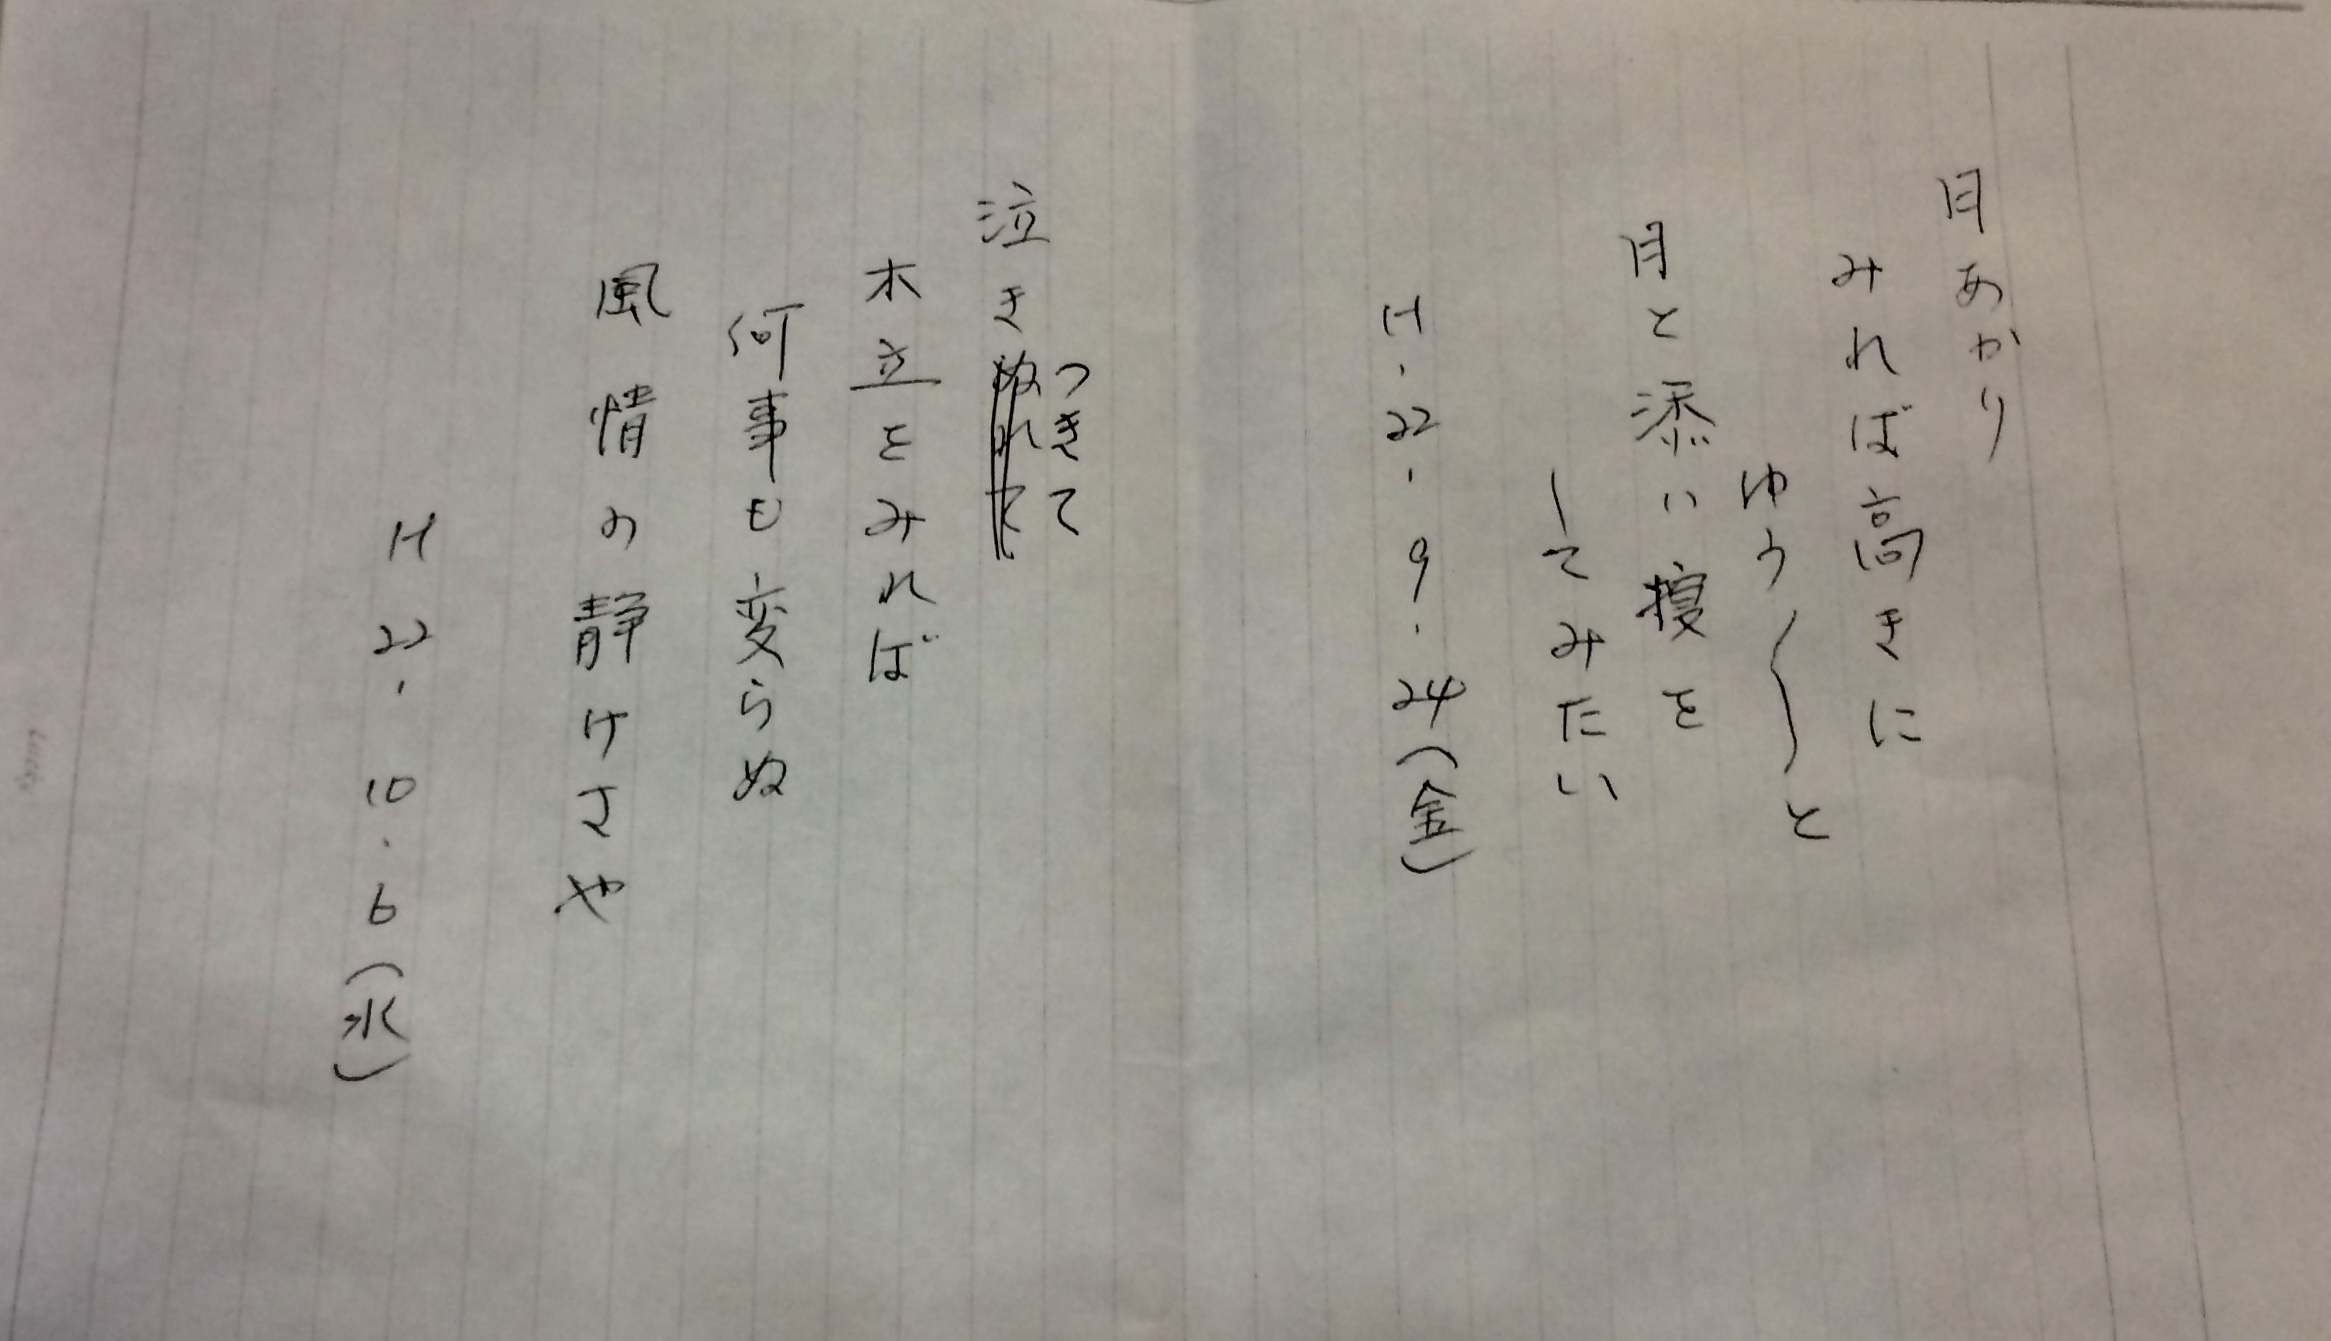 月あかり
みれば高きに
ゆう〳〵と
月と添い寝を
してみたい
H.22.9.24(金)
泣きつきて
木立をみれば
何事も変らぬ
風情の静けさや
H22.10.6(水)